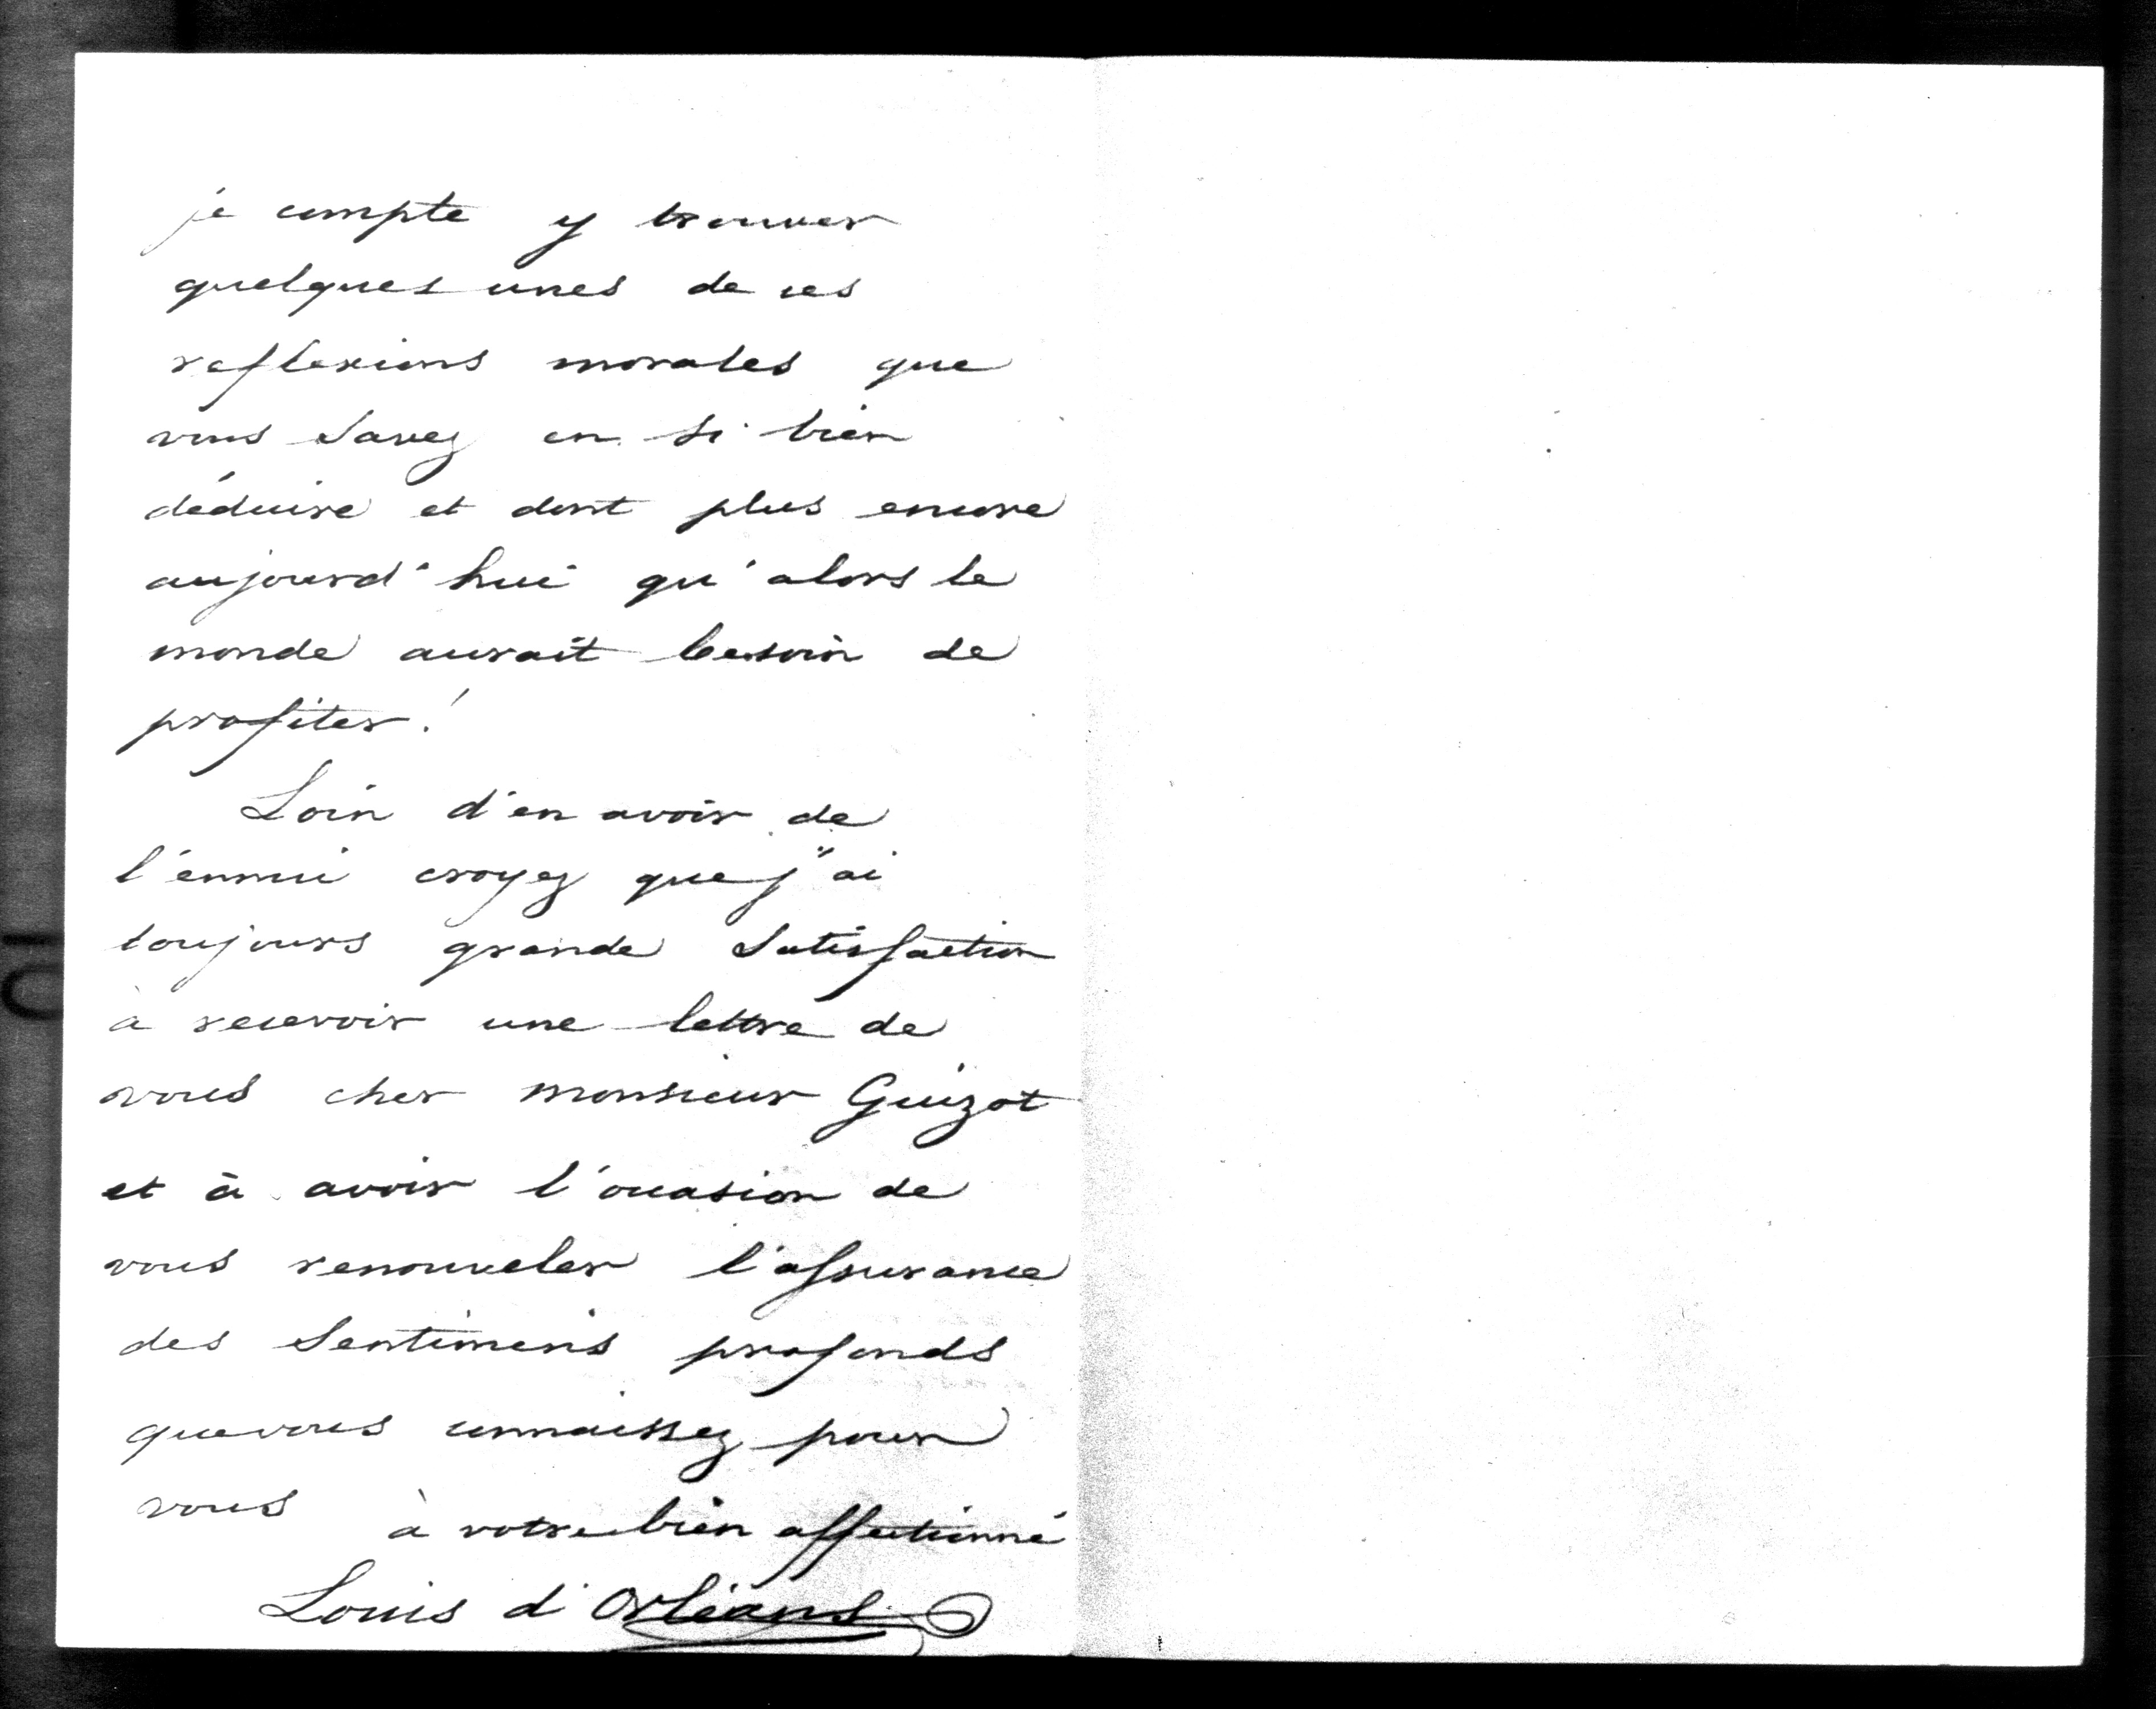 je compte y trouver
quelques unes de ces
reflexions morales que
vous savez en si bien
déduire et dont plus encore
aujourd'hui qu'alors le
monde aurait besoin de
profiter!
Loin d'en avoir de
l'ennui croyez que j'ai
toujours grande satisfaction
à recevoir une lettre de
vous cher monsieur Guizot
et à avoir l'occasion de
vous renouveler l'assurance
des sentimens profonds
que vous connaissez pour
vous à votre bien affectionné
Louis d'Orléans